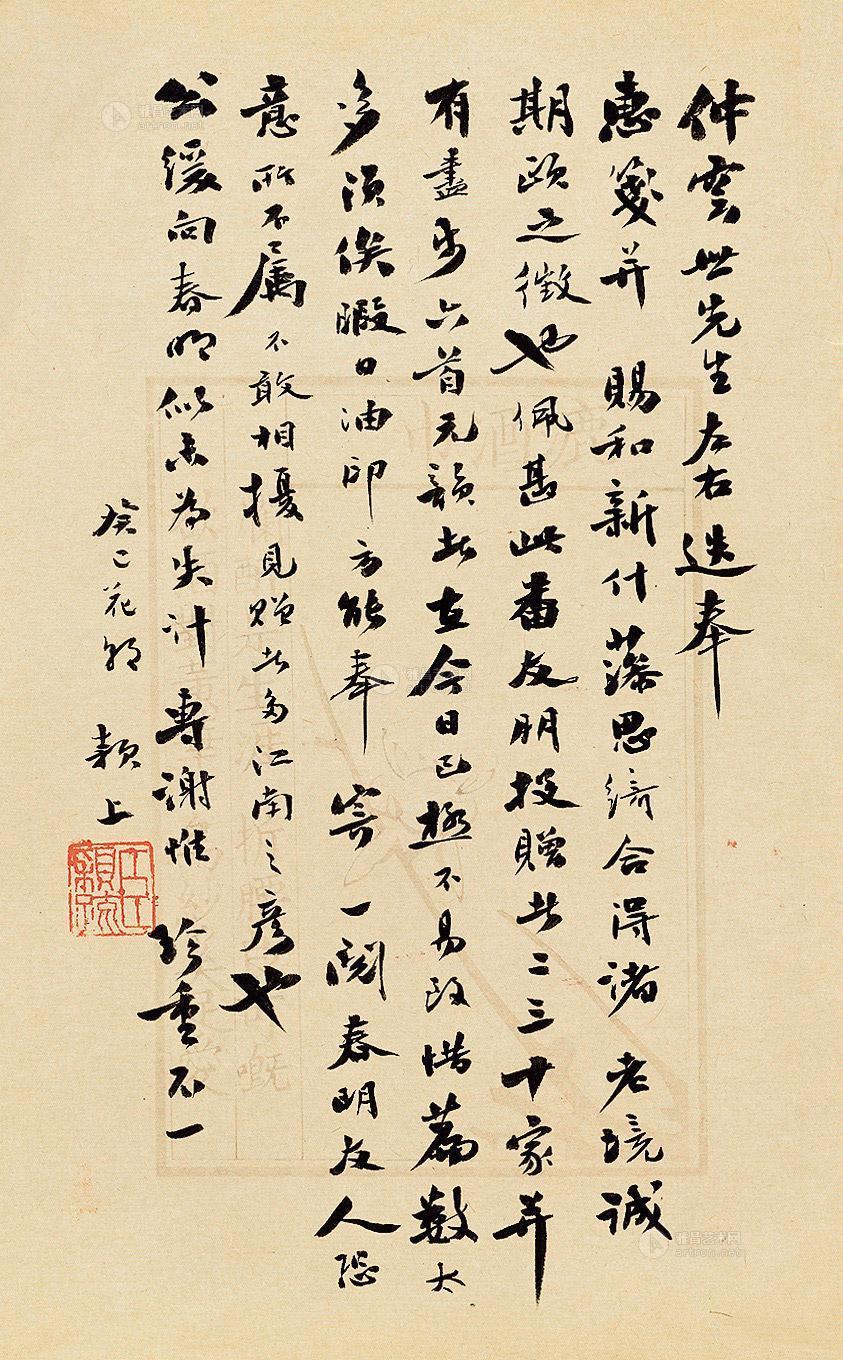 仲雲世先生左右迭奉
惠箋并 賜和新什藻思綺合得諸 老境誠
期頤之徵也佩甚此番友朋投贈者二三十家并
有盡步六首元韻者在今日已極不易改惜篇數太
多須俟暇日油印方能奉 寄 一閱春明友人恐
意所不屬不敢相擾見贈者多江南之彥也
公緩向春明似未為失計專謝惟 珍重不一
癸巳花朝 穎上
雅昌艺术网
artron.net